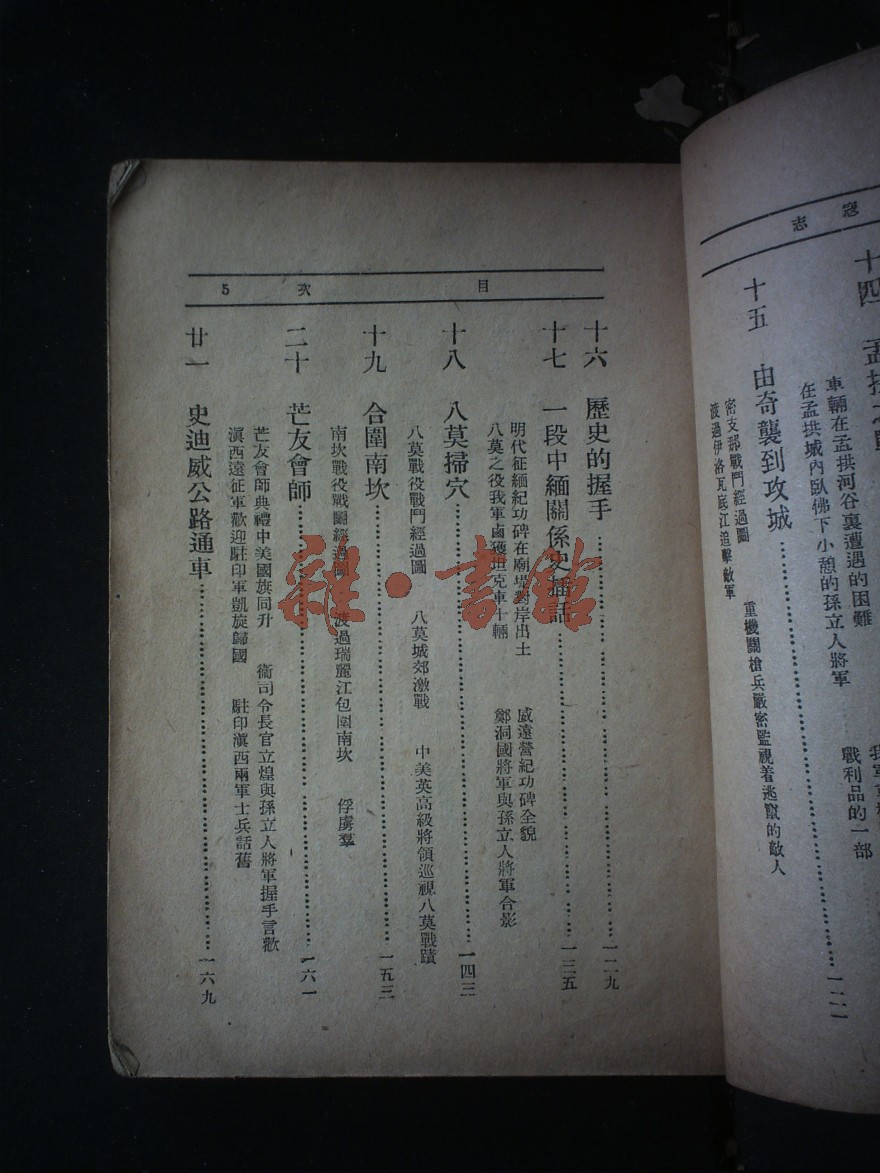 志
十四 孟拱之
車輛在孟拱河谷裏遭遇的困難
在孟拱城內臥佛下小憩的孫立人將軍
戰利品的一部
一二一
十五 由奇襲到攻城
密支那戰鬥經過圖 重機關槍兵嚴密監視着逃竄的敵人
渡過伊洛瓦底江追擊敵軍
目 次 5
十六 歷史的握手 一二九
十七 一段中緬關係史插話 一三五
明代征緬紀功碑在廟堤對岸出土 威遠營紀功碑全貌
八莫之役我軍鹵獲坦克車十輛 鄭洞國將軍與孫立人將軍合影
十八 八莫掃穴 一四三
八莫戰役戰鬥經過圖 八莫城郊激戰 中美英高級將領巡視八莫戰蹟
十九 合圍南坎 一五三
南坎戰役戰鬥經過圖 渡過瑞麗江包圍南坎 俘虜羣
二十 芒友會師 一六一
芒友會師典禮中美國旗同升 衞司令長官立煌與孫立人將軍握手言歡
滇西遠征軍歡迎駐印軍凱旋歸國 駐印滇西兩軍士兵話舊
廿一 史迪威公路通車 一六九
雜·書館